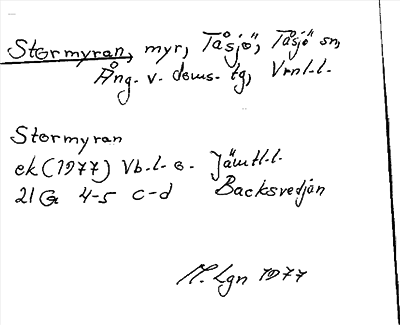 Stormyran, myr, Tåsjö, Tåsjö sn,
Ång. v. doms. tg, Vrnl.l.
Stormyran
ek (1977) Vb.l. o. Jämtl.l.
21G 4-5 c-d Backsvedjan
M. Lgn 1977